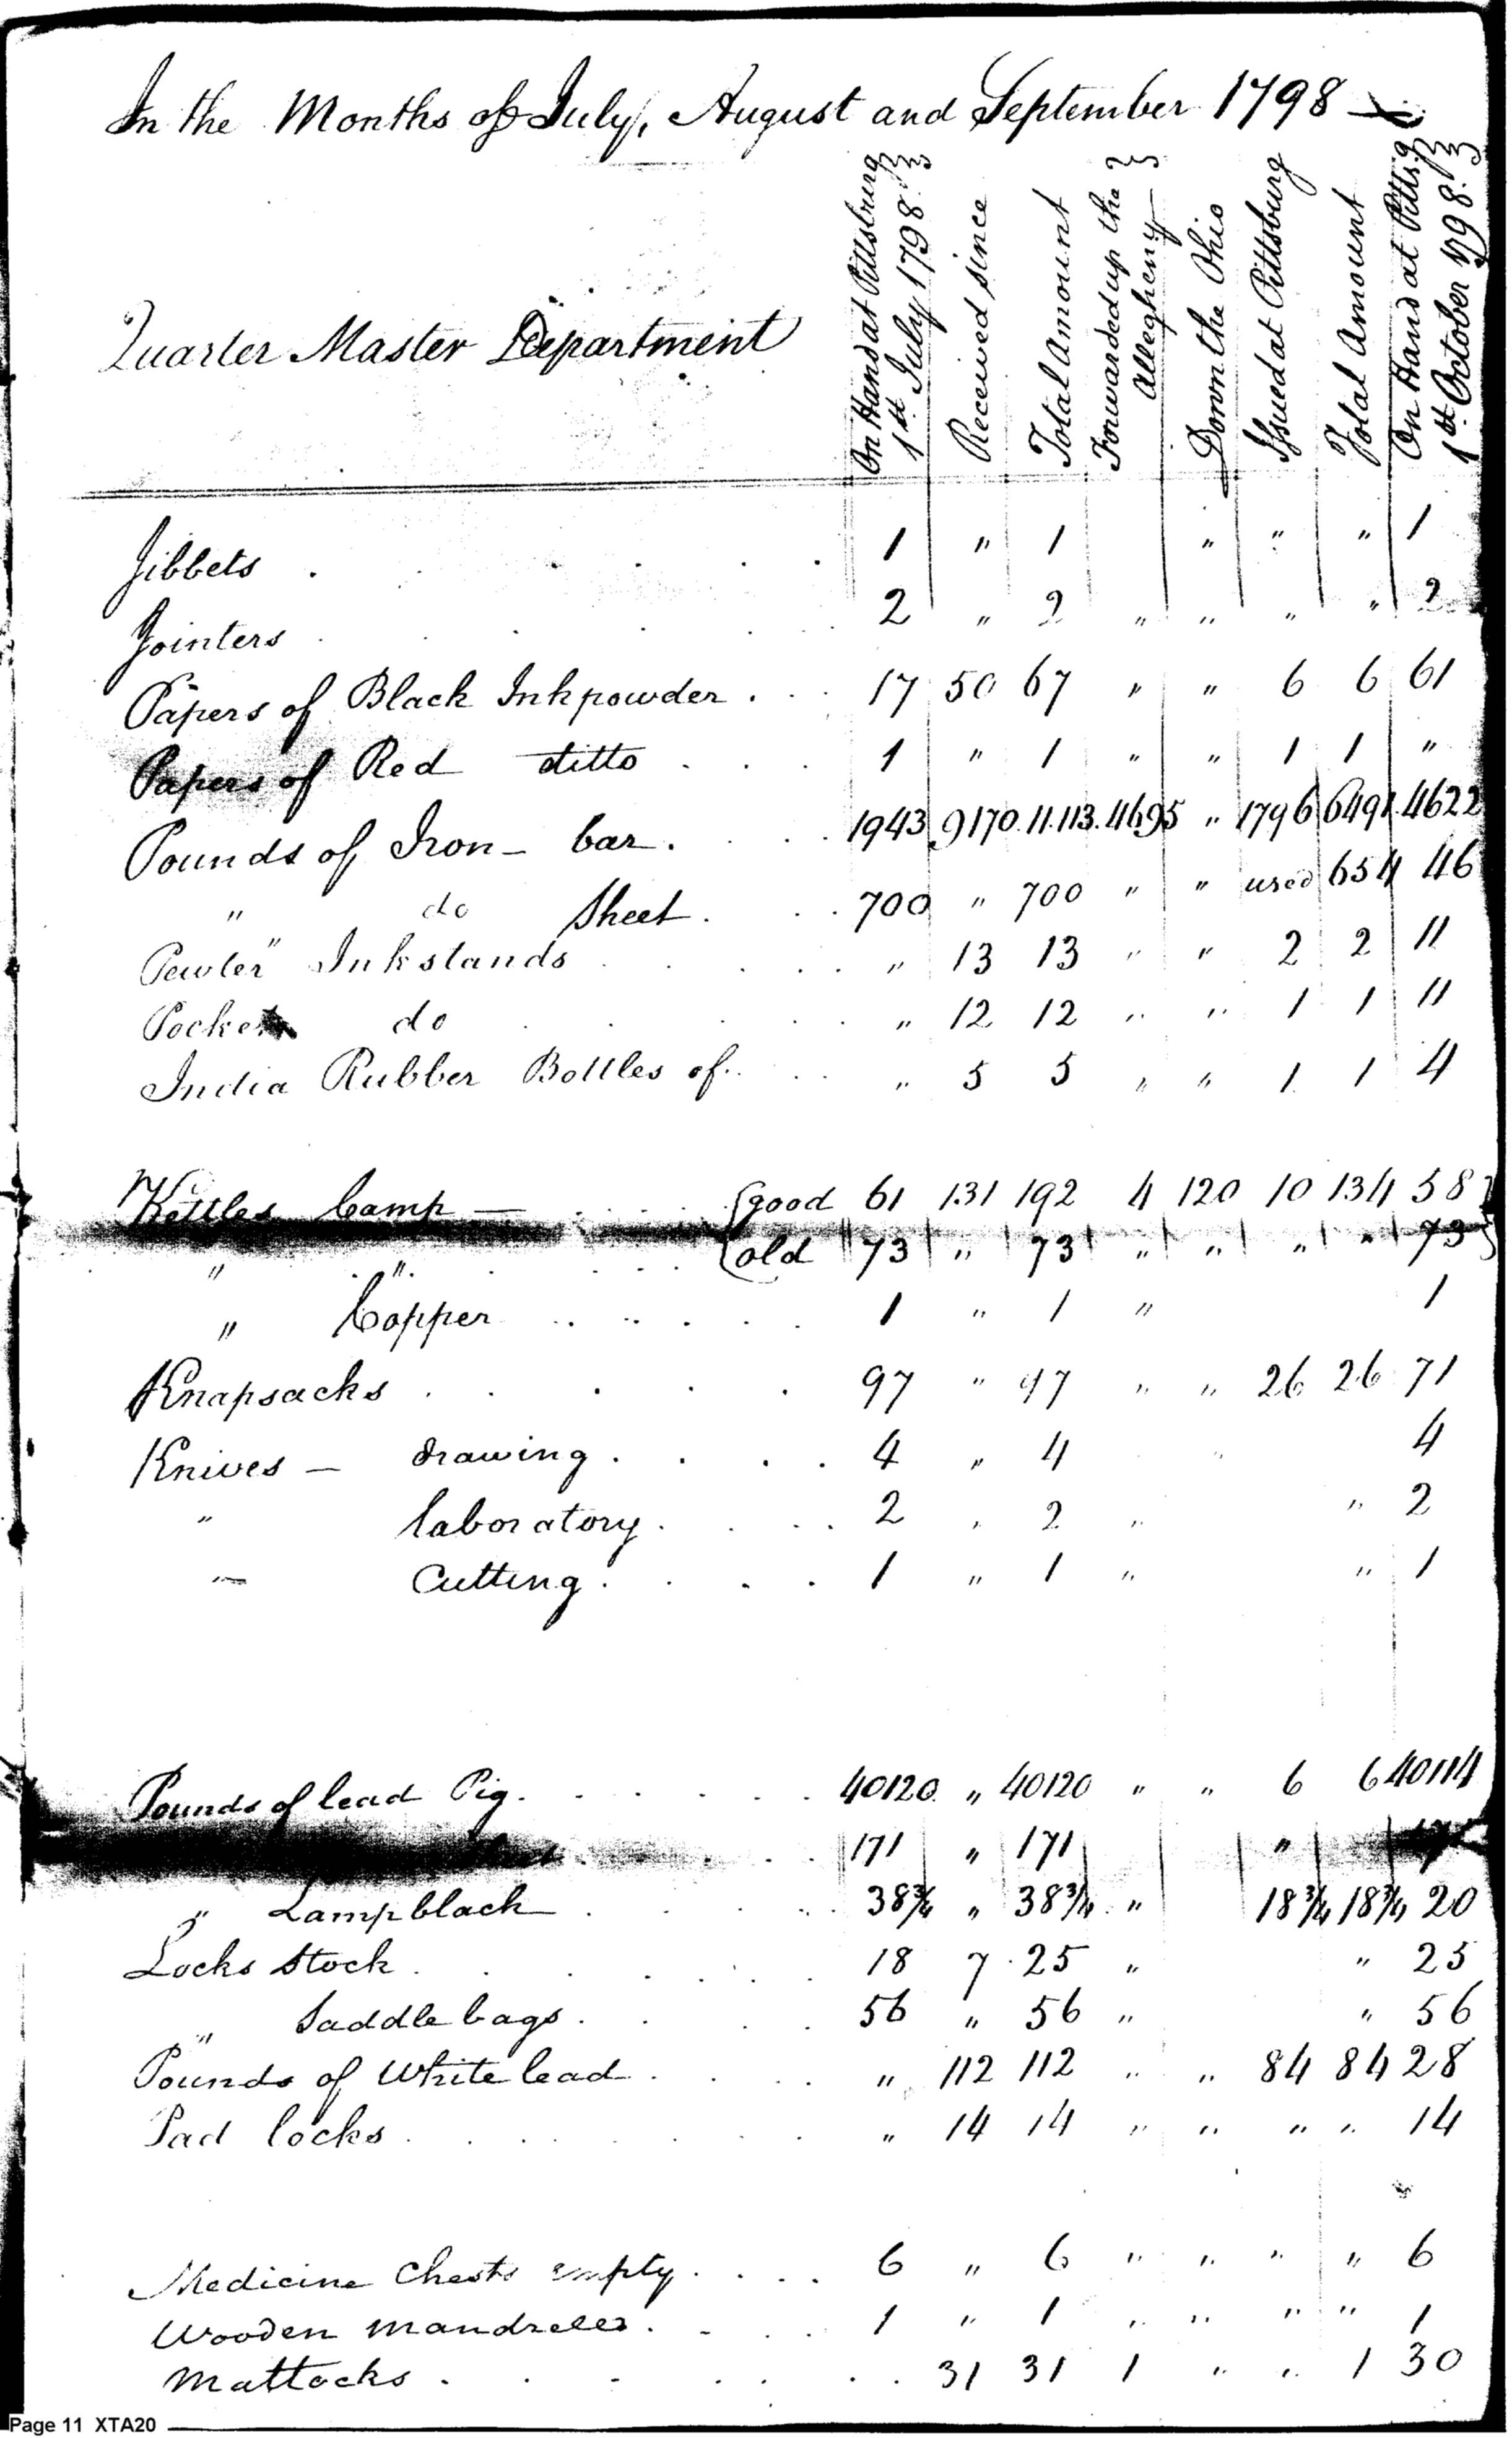 In the Months of July, August and September 1798
Quarter Master Department
On Hand at Pittsburg 1st July 1798.
Received since
Total Amount
Forwarded up the Allegheny
Down the Ohio
Issued at Pittsburg
Total Amount
On Hand at Pittsg 1st October 1798.
Jibbets . . . . . 1 " 1 " " " 1
Jointers . . . . 2 " 2 " " " " 2
Papers of Black Inkpowder . . . 17 50 67 " " 6 6 61
Papers of Red ditto . . . 1 " 1 " " 1 1 "
Pounds of Iron - bar . . . 1943 9170 11.113. 4695 " 1796 6491 4622
" do Sheet . . . 700 " 700 " " used 654 46
Pewter " Inkstands . . . . " 13 13 " " 2 2 11
Pocket do . . . . " 12 12 " " 1 1 11
India Rubber Bottles of . . . " 5 5 " " 1 1 4
Kettles Camp — . . . {good 61 131 192 4 120 10 134 58}
" " . . . {old 73 " 73 " " " " 73}
" Copper . . . . . 1 " 1 " 1
Knapsacks . . . . . 97 " 97 " " 26 26 71
Knives — drawing . . . . 4 " 4 " 4
" laboratory . . . . 2 " 2 " " 2
" Cutting . . . . 1 " 1 " " 1
Pounds of lead Pig . . . . . 40120 " 40120 " " 6 6 40114
171 " 171 "
" Lampblack . . . 38¾ " 38¾ " 18¾ 18¾ 20
Locks Stock . . . . . 18 7 25 " " 25
" Saddle bags . . . 56 " 56 " " 56
Pounds of White lead . . . . " 112 112 " " 84 84 28
Pad locks . . . . . " 14 14 " " " " 14
Medicine Chests empty . . . . 6 " 6 " " " " 6
Wooden Mandrells . . . . 1 " 1 " " " " 1
Mattocks . . . . . . 31 31 1 " " 1 30
Page 11 XTA20